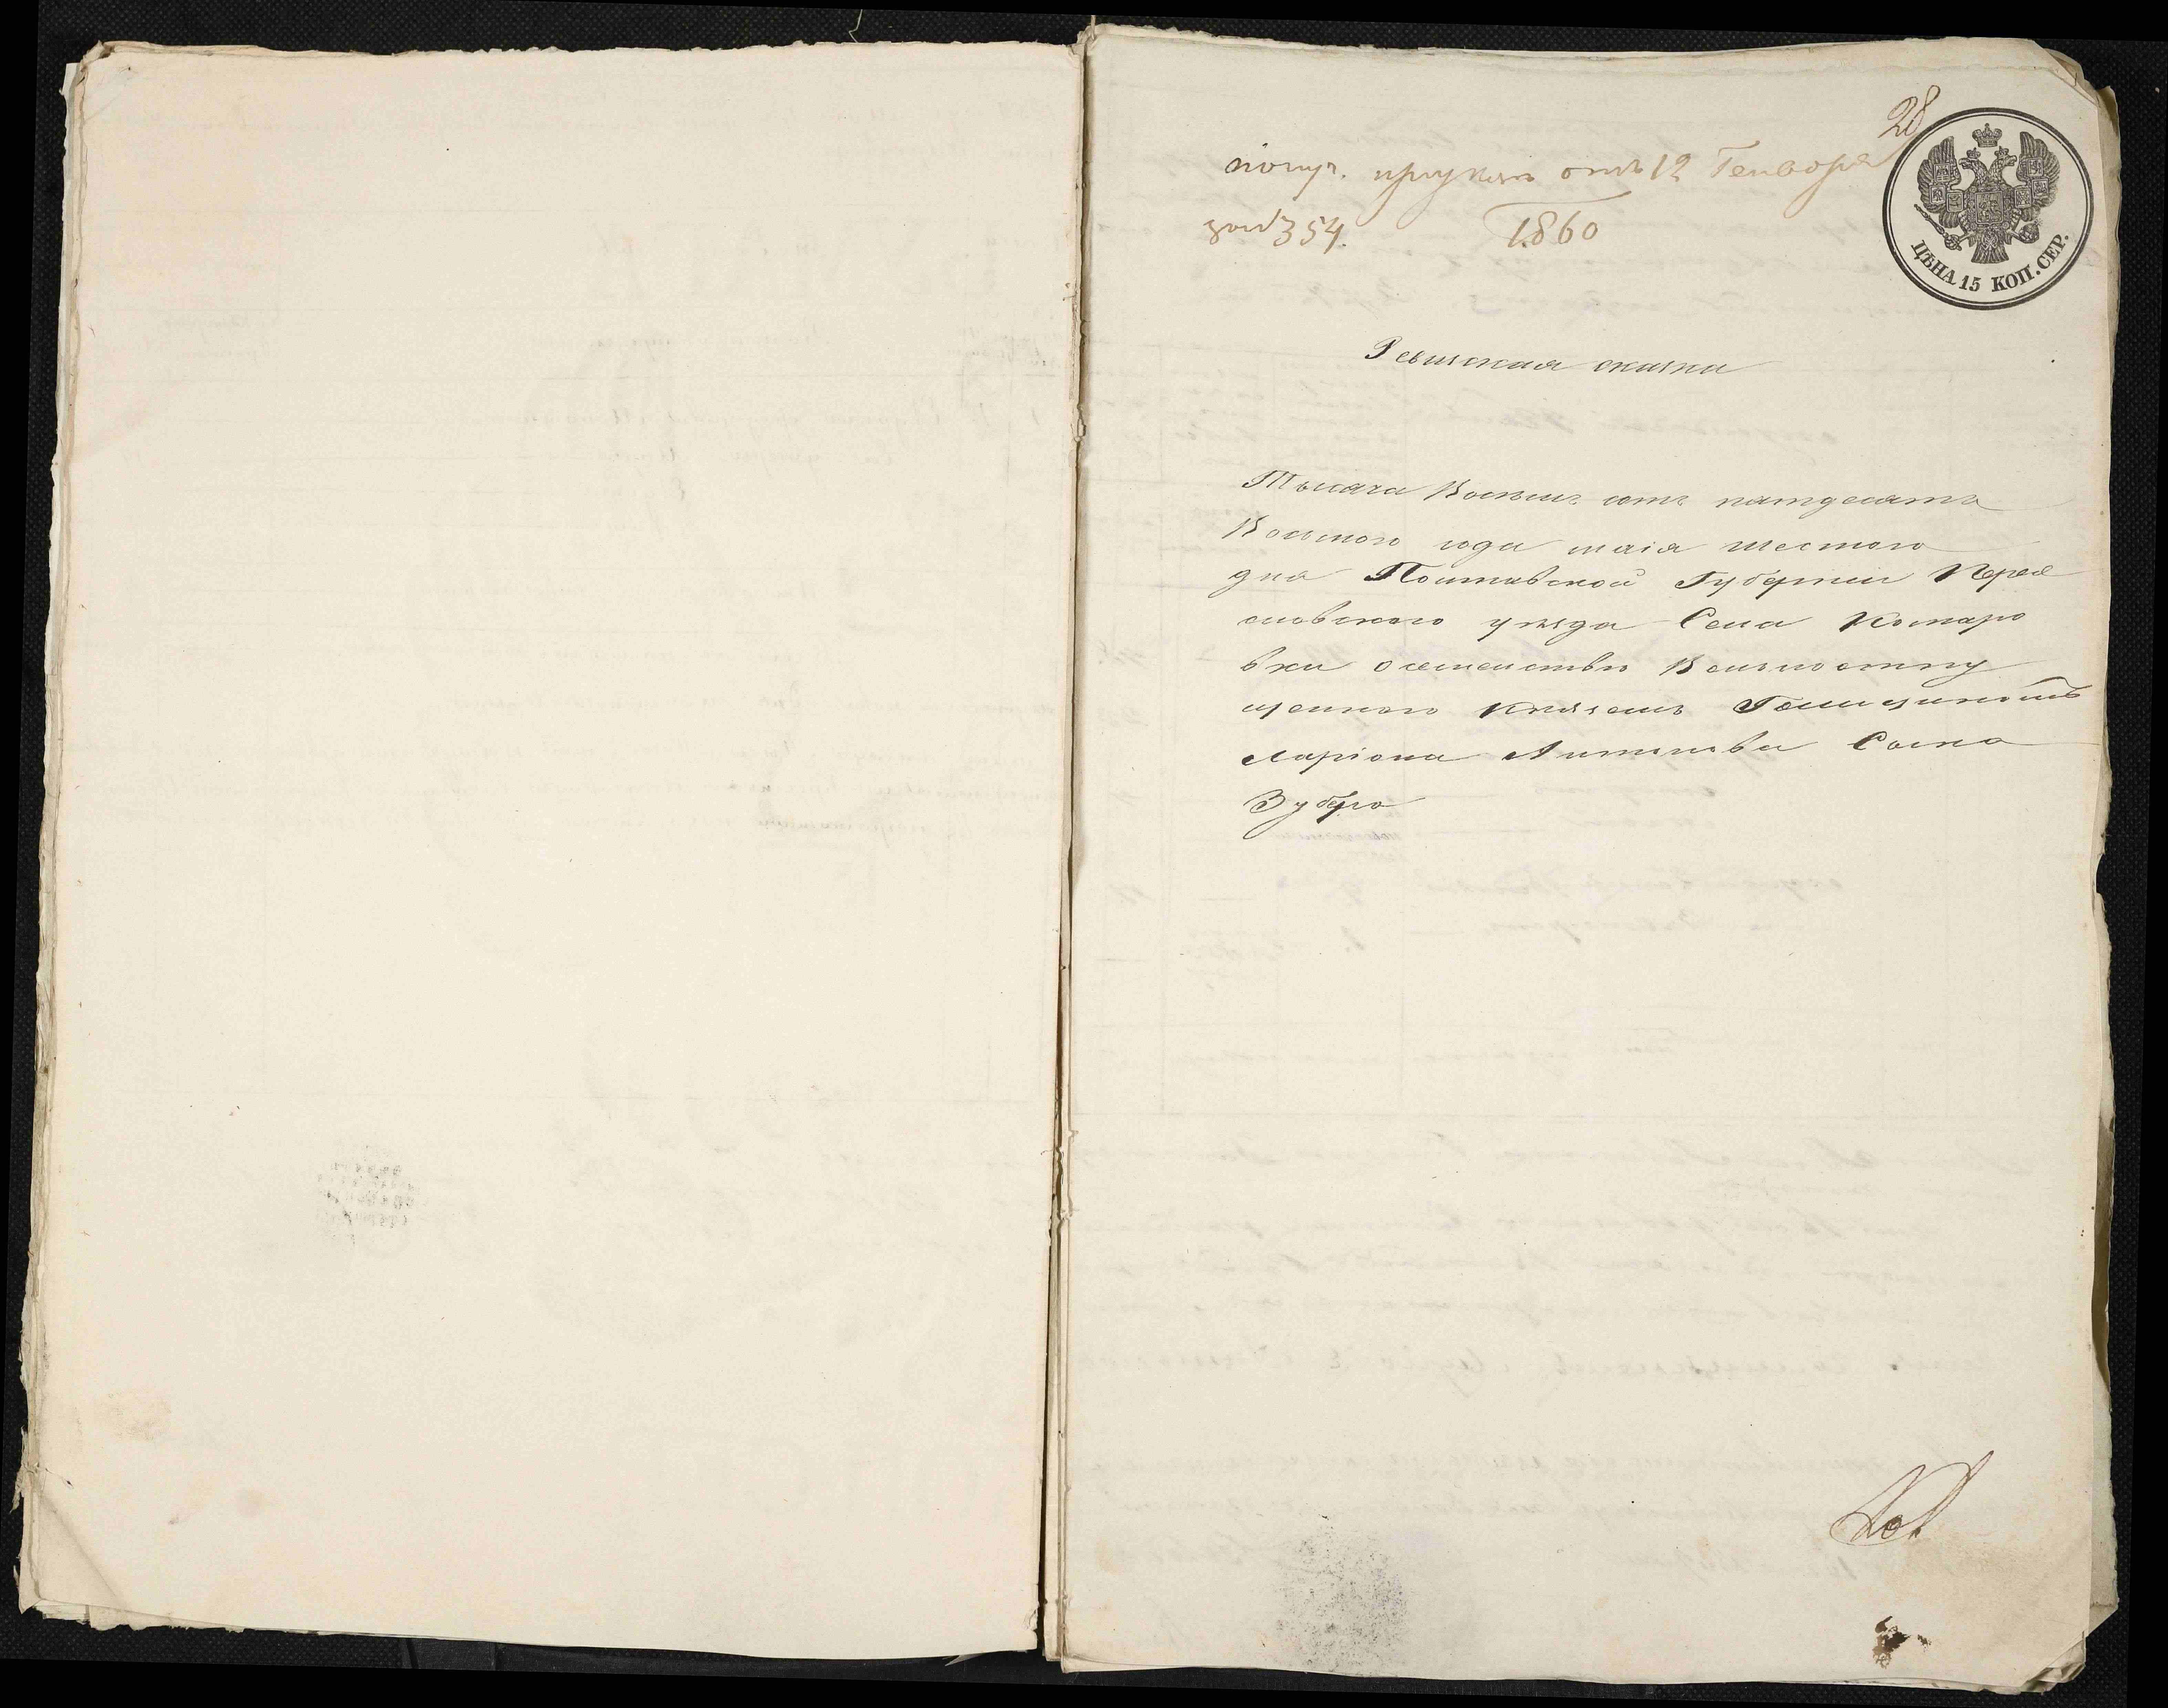 28
получ. при указе отъ 12 Генваря
за № 354. 1860
ЦѢНА 15 КОП. СЕР.
Ревизская сказка
Тысяча Восемь сотъ пятдесятъ
Восьмого года маія шестого
дня Полтавской Губерніи Перея
словского уѣзда Села Комаро
вки о семействѣ Вольноотпу
щенного Княземъ Голицинымъ
Ларіона Антонова Сына
Зубра